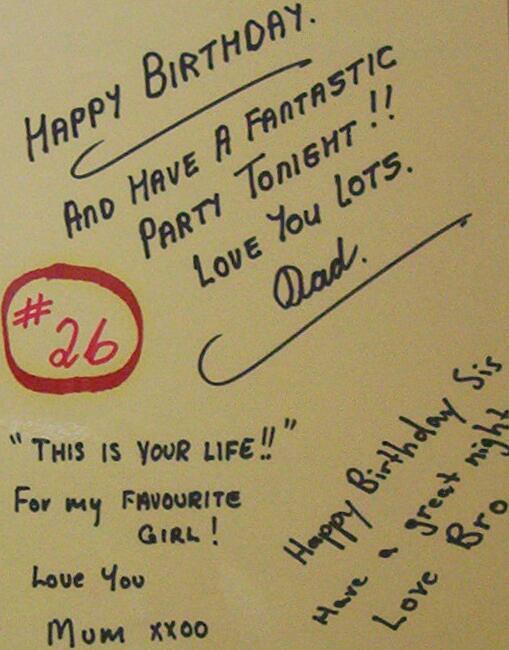 HAPPY BIRTHDAY.
AND HAVE A FANTASTIC
PARTY TONIGHT!!
LOVE YOU LOTS.
Dad.
#26
"THIS IS YOUR LIFE!!"
For my FAVOURITE
GIRL!
Love You
Mum xxoo
Happy Birthday Sis
Have a great night
Love Bro